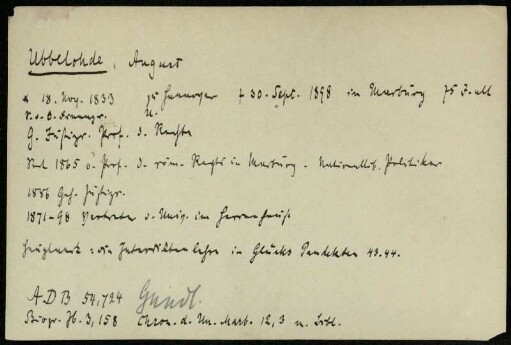 Ubbelohde, August
* 18. Nov. 1833 zu Hannover + 30. Sept. 1898 in Marburg 75 J. alt
S. d. O. Finanzr. u.
G. Justizr. Prof. d. Rechte
Seit 1865 o. Prof. d. röm. Rechts in Marburg. Nationallib. Politiker
1886 Geh. Justizr.
1871-98 Vertreter d. Univ. im Herrenhause
Hauptwerk: die Interdiktenlehre in Glücks Pandekten 43.44.
ADB 54,724 Gundl.
Biogr. Jb. 3,158 Chron. d. Un. Marb. 12,3 m. Bibl.